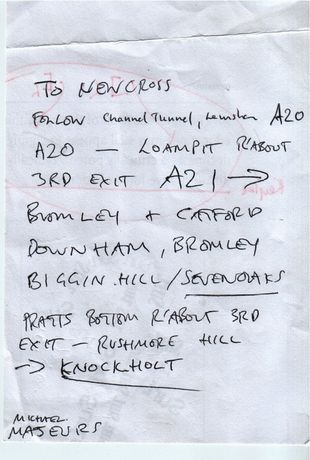 TO NEWCROSS
FOLLOW Channel Tunnel, Lewisham A20
A20 — LOAMPIT R'ABOUT
3RD EXIT A21 →
BROMLEY + CATFORD
DOWNHAM, BROMLEY
BIGGIN HILL/SEVENOAKS
PRATTS BOTTOM R'ABOUT 3RD
EXIT — RUSHMORE HILL
→ KNOCKHOLT
MICHAEL.
MAJEURS